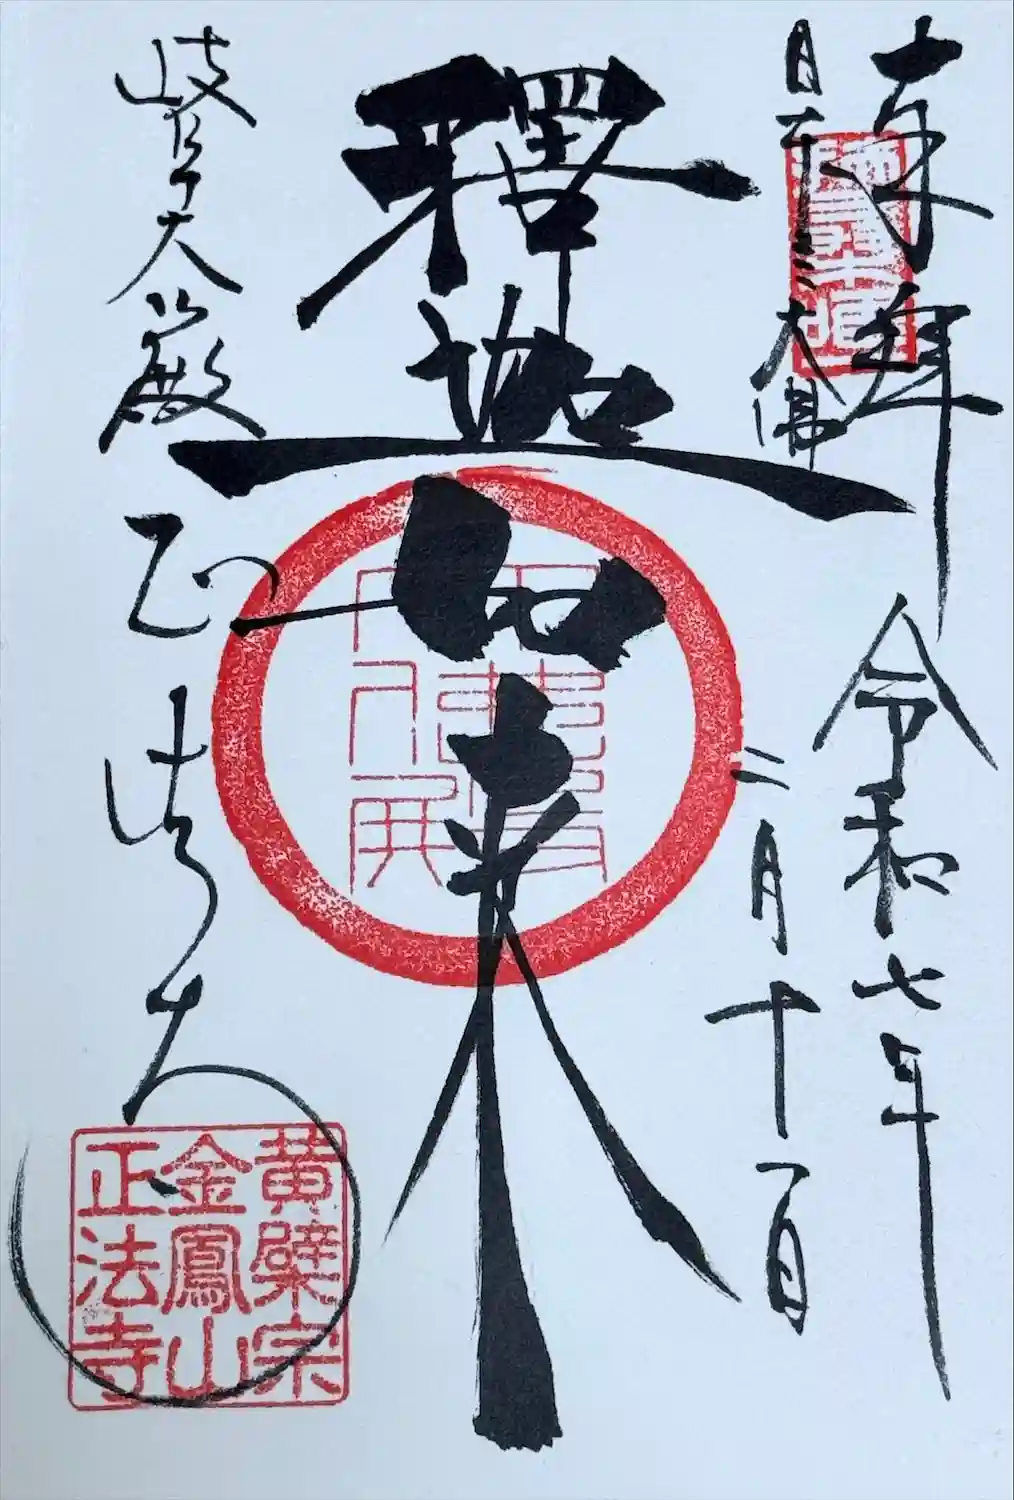 奉拝 令和七年
日本三大佛
二月十一日
釋迦如来
岐阜大殿
正法寺
黄檗宗
金鳳山
正法寺